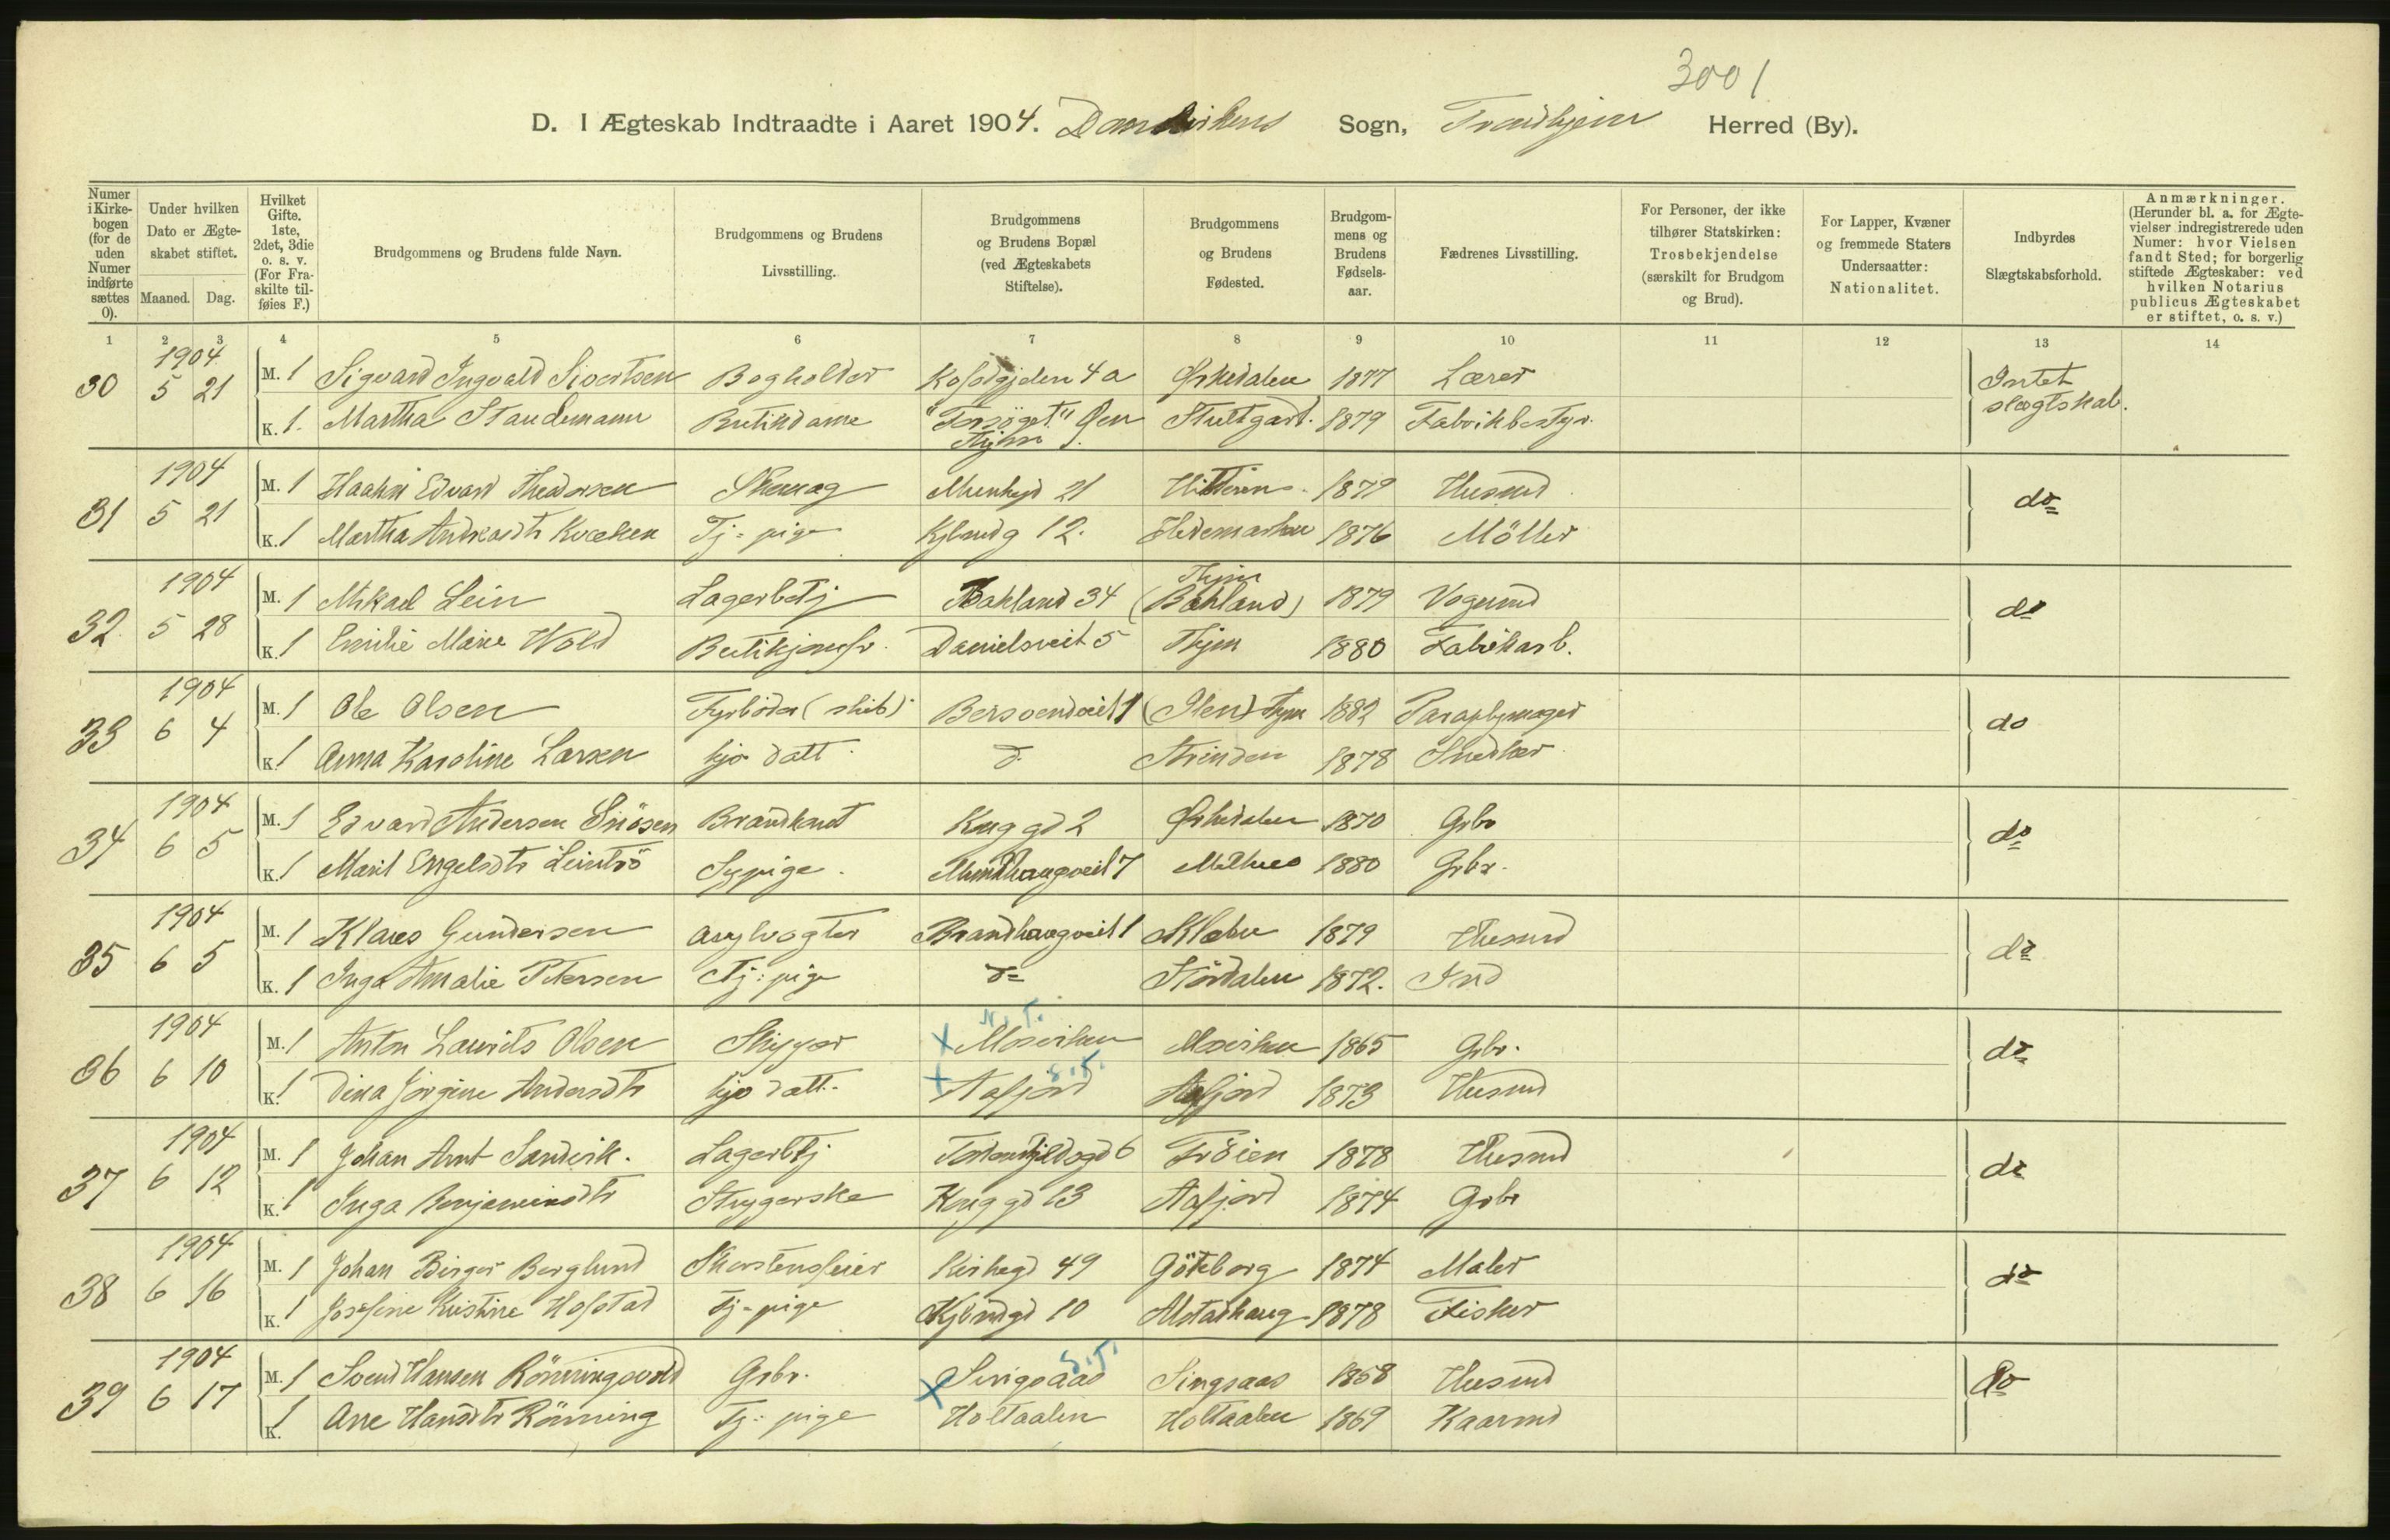 3001
D. I Ægteskab Indtraadte i Aaret 1904. Domkirkens Sogn, Trondhjem Herred (By).
Numer i Kirkebogen (for de uden Numer indførte sættes 0).
Under hvilken Dato er Ægteskabet stiftet.
Maaned. Dag.
Hvilket Gifte. 1ste, 2det, 3die o. s. v. (For Fraskilte tilføies F.)
Brudgommens og Brudens fulde Navn.
Brudgommens og Brudens Livsstilling.
Brudgommens og Brudens Bopæl (ved Ægteskabets Stiftelse).
Brudgommens og Brudens Fødested.
Brudgommens og Brudens Fødselsaar.
Fædrenes Livsstilling.
For Personer, der ikke tilhører Statskirken: Trosbekjendelse (særskilt for Brudgom og Brud).
For Lapper, Kvæner og fremmede Staters Undersaatter: Nationalitet.
Indbyrdes Slægtskabsforhold.
Anmærkninger. (Herunder bl. a. for Ægtevielser indregistrerede uden Numer: hvor Vielsen fandt Sted; for borgerlig stiftede Ægteskaber: ved hvilken Notarius publicus Ægteskabet er stiftet, o. s. v.)
1 2 3 4 5 6 7 8 9 10 11 12 13 14
1904
30 5 21 M. 1 Sigvard Ingvald Sivertsen Bogholder 4a Ørkedalen 1877 Lærer Intet slægtskab.
K. 1. Martha Staudemann Butikdame Stuttgart. 1879 Fabrikbestyr.
1904
31 5 21 M. 1 Haakin Edvard Theodorsen Skomag Munkegd 21 Hitteren 1879 Husmd do
K. 1 Martha Andreasdtr Kvæken Tj-pige Kjbmdg 12. Hedemarken 1876 Möller
1904
32. 5 28 M. 1 Mikael Lein Lagerbetj Bakland 34 Thjm (Bakland) 1879 Vognmd do
K. 1 Emilie Marie Wold Butikjomfr. Danielsveit 5 Thjm 1880 Fabrikarb.
1904
33 6 4 M. 1 Ole Olsen Fyrböder (skib) Bersvendveit 1 (Ilen) Thjm 1882 Paraplymager do
K. 1 Anna Karoline Larsen hjv datt d. Strinden 1878 Snedker
1904
34 6 5 M. 1 Edvard Andersen Snösen Brandkonst Krug gd 2 Ørkedalen 1870 Gbr do
K. 1 Marit Engelsdtr Leintrö Sypige. Munkhaugveit 7 Melhus 1880 Gbr.
1904
35 6 5 M. 1 Klaus Gundersen Asylvogter Brandhaugveit 1 Klæbu 1879 Husmd do
K. 1 Inga Amalie Petersen Tj: pige do Stördalen 1872. Ind
1904
36 6 10 M. 1 Anton Laurits Olsen Skipper N. T. x Mosviken Mosviken 1865 Gbr. do
K. 1 Dina Jörgine Andersdtr hjv datt. S. T. x Aafjord Aafjord 1873 Husmd
1904
37 6 12 M. 1 Johan Arnt Sandvik. Lagerbtj Tordenskjoldsgd 6 Fröien 1878 Husmd do
K. 1 Inga Benjaminsdtr Strygerske Krug gd 13 Aafjord 1874 Gbr
1904
38 6 16 M. 1 Johan Birger Berglund Skorstensfeier Kirkegd 49 Göteborg 1874 Maler do
K. 1 Josefine Kristine Hofstad Tj-pige Kjbmdgd 10 Alstadhaug 1878 Fisker
1904
39 6 17 M. 1 Svend Hansen Rönningsvold Gbr. S. T. x Singsaas Singsaas 1868 Husmd do
K. 1 Ane Hansdtr Rönning Tj: pige Holtaalen Holtaalen 1869 Kaarmd